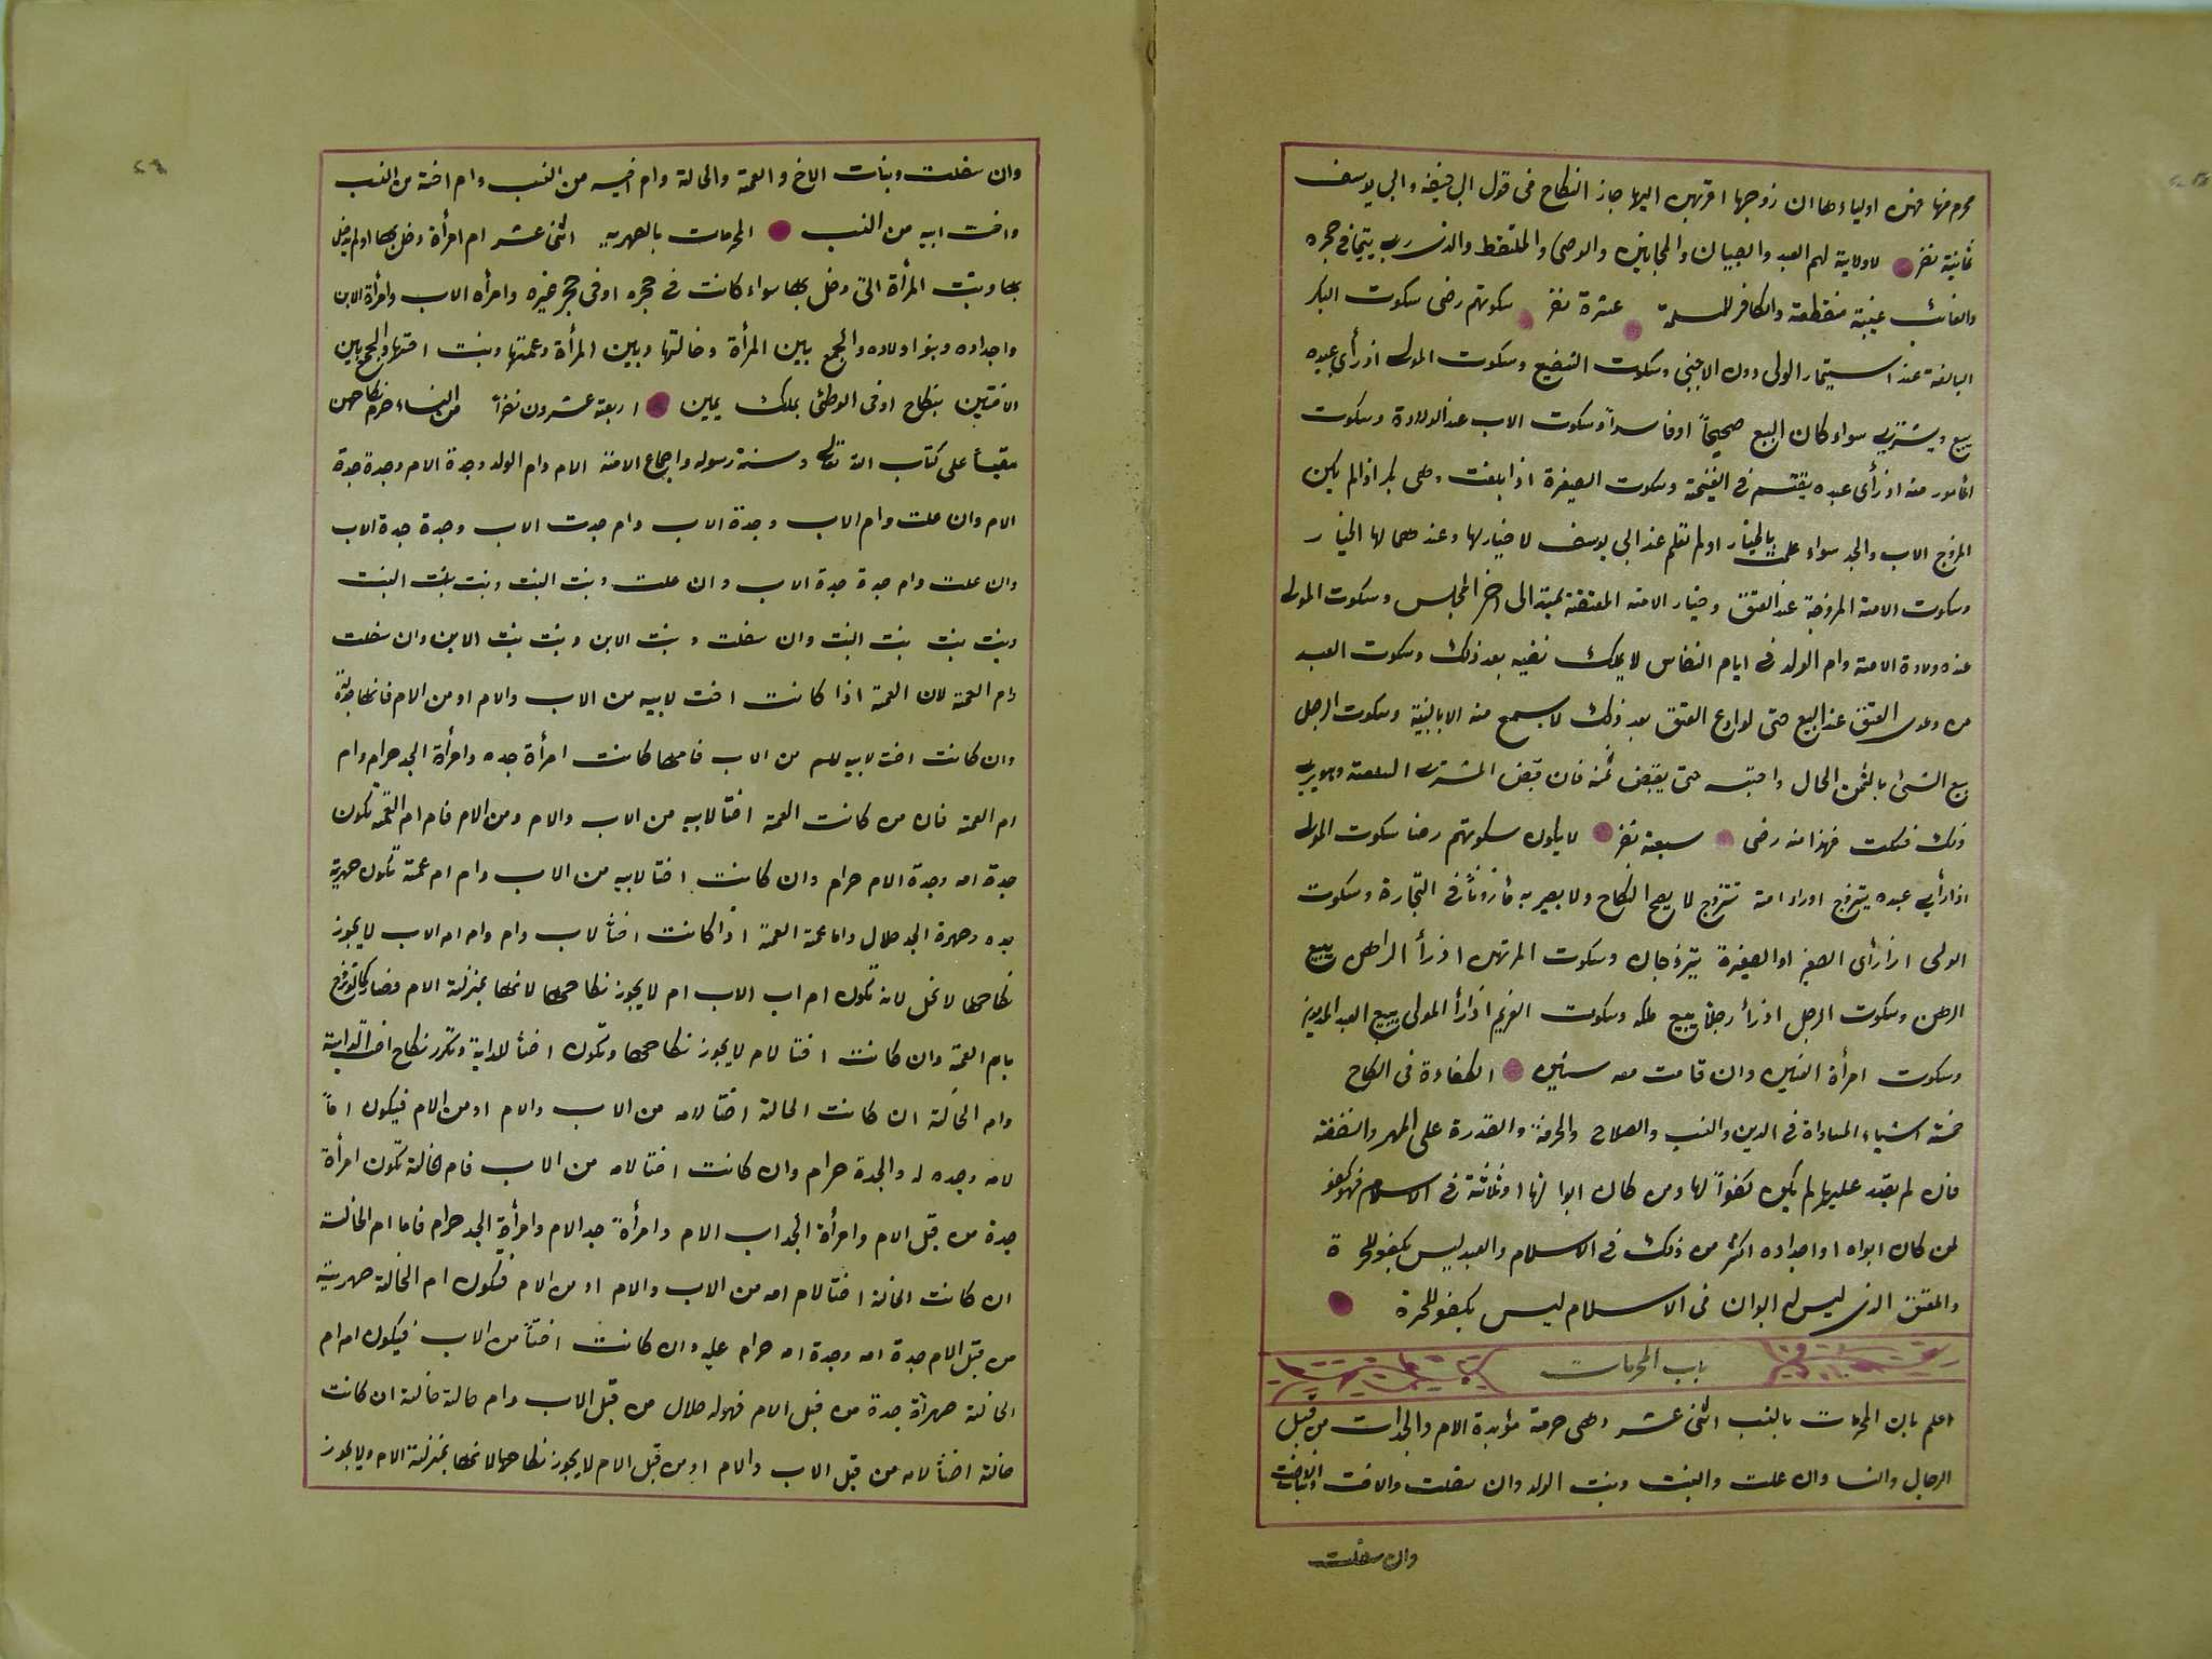 محرم منها فهن اولياءها ان زوجها اقربهن اليها جاز النكاح فى قول ابى حنيفه وابى يوسف
ثمانية نفر لا ولاية لهم العبد والصبيان والمجانين والوصى والملتقط والذى ربى يتيما فى حجره
والغائب غيبة منقطعة والكافر للمسلمة عشرة نفر سكوتهم رضى سكوت البكر
البالغة عند استيمار الولى دون الاجنبى وسكوت الشفيع وسكوت المولى اذ رأى عبده
يبيع ويشترى سواء كان البيع صحيحاً او فاسداً وسكوت الاب عند الولادة وسكوت
المأمور منه اذ رأى عبده يقتسم فى الغنيمة وسكوت الصغيرة اذا بلغت وهى بكر اذا لم يكن
المزوج الاب والجد سواء علمت بالخيار او لم تعلم عند ابى يوسف لا خيار لها وعندهما لها الخيار
وسكوت الامة المزوجة عند العتق وخيار الامة المعتقة يمتد الى اخر المجلس وسكوت المولى
عنده ولادة الامة وام الولد فى ايام النفاس لا يملك نفيه بعد ذلك وسكوت العبد
من دعوى العتق عند البيع حتى لو ادع العتق بعد ذلك لا يسمع منه الا بالبينة وسكوت الرجل
بيع الشئ بالثمن الحال واحتبسه حتى يقبض ثمنه فان قبض المشترى السلعة وهو يرى
ذلك فسكت فهذا منه رضى سبعة نفر لا يكون سكوتهم رضا سكوت المولى
اذا رأى عبده يتزوج اوراد امة تتزوج لا يصح النكاح ولا يصير به مأزوناً فى التجارة وسكوت
الولى اذا رأى الصغير او الصغيرة يتزوجان وسكوت المرتهن اذ رأ الراهن يبيع
الرهن وسكوت الرجل اذ رأ رجلاً يبيع ملكه وسكوت الغريم اذا رأ المولى يبيع العبد المديون
وسكوت امرأة العنين وان قامت معه سنين الكفاءة فى النكاح
خمسة اشياء المساواة فى الدين والنسب والصلاح والحرفة والقدرة على المهر والنفقة
فان لم يقدر عليهما لم يكن كفواً لها ومن كان ابوا لها او ثلاثة فى الاسلام فهو كفو
لمن كان ابواه او اجداده اكثر من ذلك فى الاسلام والعبد ليس بكفو للحرة
والمعتق الذى ليس له ابوان فى الاسلام ليس بكفو للحرة
باب المحرمات
اعلم بان المحرمات بالنسب اثنى عشر وهى حرمة مؤبدة الام والجدات من قبل
الرجال والنسا وان علت والبنت وبنت الولد وان سفلت والاخت وبنات الاخت
وان سفلت
وان سفلت وبنات الاخ والعمة والخالة وام اخيه من النسب وام اخته من النسب
واخت ابيه من النسب المحرمات بالصهرية اثنى عشر ام امرأة دخل بها او لم يدخل
بها وبنت المرأة التى دخل بها سواء كانت فى حجره او فى حجر غيره وامرأه الاب وامرأة الابن
واجداده وبنو اولاده والجمع بين المرأة وخالتها وبين المرأة وعمتها وبنت اختها والجمع بين
الاختين بنكاح او فى الوطئ بملك يمين اربعة عشرون نفراً من النساء حرم نكاحهن
مقيساً على كتاب الله تعالى وسنة رسوله واجماع الامة الام وام الولد وجدة الام وجدة جدة
الام وان علت وام الاب وجدة الاب وام جدت الاب وجدة جدة الاب
وان علت وام جدة جدة الاب وان علت وبنت البنت وبنت بنت البنت
وبنت بنت بنت البنت وان سفلت وبنت الابن وبنت بنت الابن وان سفلت
وام العمة لان العمة اذا كانت اخت لابيه من الاب والام او من الام فانها جدته
وان كانت اخت لابيه من الاب فامها كانت امرأة جده وامرأة الجد حرام وام
ام العمة فان من كانت العمة اختا لابيه من الاب والام ومن الام فام ام العمة تكون
جدة امه وجدة الام حرام وان كانت اختا لابيه من الاب وام ام عمة تكون صهرية
جده وصهرة الجد حلال واما عمة العمة اذا كانت اختاً لاب وام وام ام الاب لا يجوز
نكاحها لا تحل لانه تكون ام اب الاب ام لا يجوز نكاحها لانها بمنزلة الام وصار كالتزوج
بام العمة وان كانت اختا لام لا يجوز نكاحها وتكون اختاً لابيه
وام الخالة ان كانت الخالة اختا لامه من الاب والام او من الام فيكون اماً
لامه وجده له والجدة حرام وان كانت اختا لامه من الاب فام خالته تكون امرأة
جدة من قبل الام وامرأة الجد اب الام وامرأة جد الام وامرأة الجد حرام فاما ام الخالة
ان كانت الخالة اختا لام امه من الاب والام او من الام فتكون ام الخالة صهرية
من قبل الام جدة امه وجدة امه حرام عليه وان كانت اختاً من الاب فيكون ام ام
الخالة صهرأة جدة من قبل الام فهو له حلال من قبل الاب وام خالة خالته ان كانت
خالته اختاً لامه من قبل الاب والام او من قبل الام لا يجوز نكاحها لانها بمنزلة الام ولا يجوز